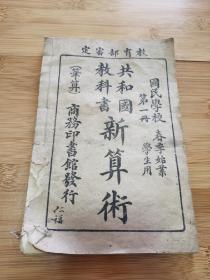 教育部審定
國民學校 春季始業
第一冊 學生用
共和國
教科書
新算術
（筆算）
商務印書館發行